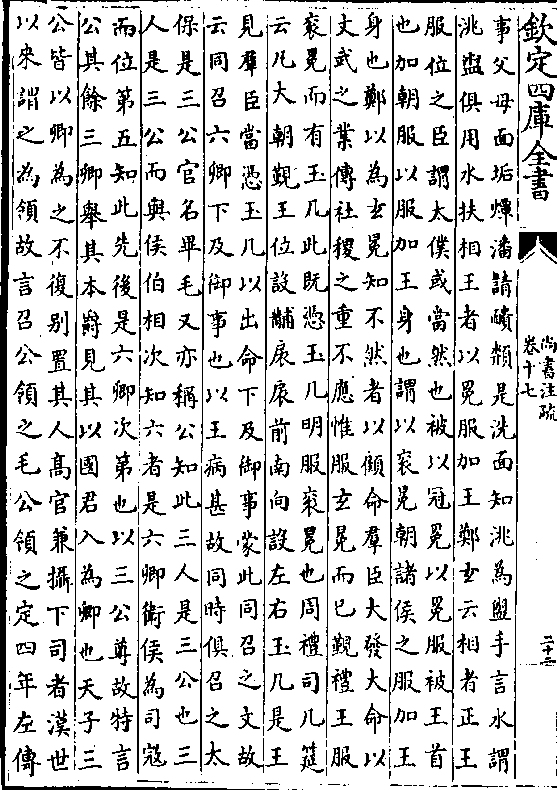 欽定四庫全書
尚書注疏
卷十七
二十三
事父母面垢燂潘請靧頮是洗面知洮為盥手言水謂
洮盥俱用水扶相王者以冕服加王鄭𤣥云相者正王
服位之臣謂太僕或當然也被以冠冕以冕服被王首
也加朝服以服加王身也謂以衮冕朝諸侯之服加王
身也鄭以為𤣥冕知不然者以顧命羣臣大發大命以
文武之業傳社稷之重不應惟服𤣥冕而已覲禮王服
衮冕而有玉几此既憑玉几明服衮冕也周禮司几筵
云凡大朝覲王位設黼扆扆前南向設左右玉几是王
見羣臣當憑玉几以出命下及御事蒙此同召之文故
云同召六卿下及御事也以王病甚故同時俱召之太
保是三公官名畢毛又亦稱公知此三人是三公也三
人是三公而與侯伯相次知六者是六卿衛侯為司寇
而位第五知此先後是六卿次第也以三公尊故特言
公其餘三卿舉其本爵見其以國君入為卿也天子三
公皆以卿為之不復别置其人髙官兼攝下司者漢世
以來謂之為領故言召公領之毛公領之定四年左傳